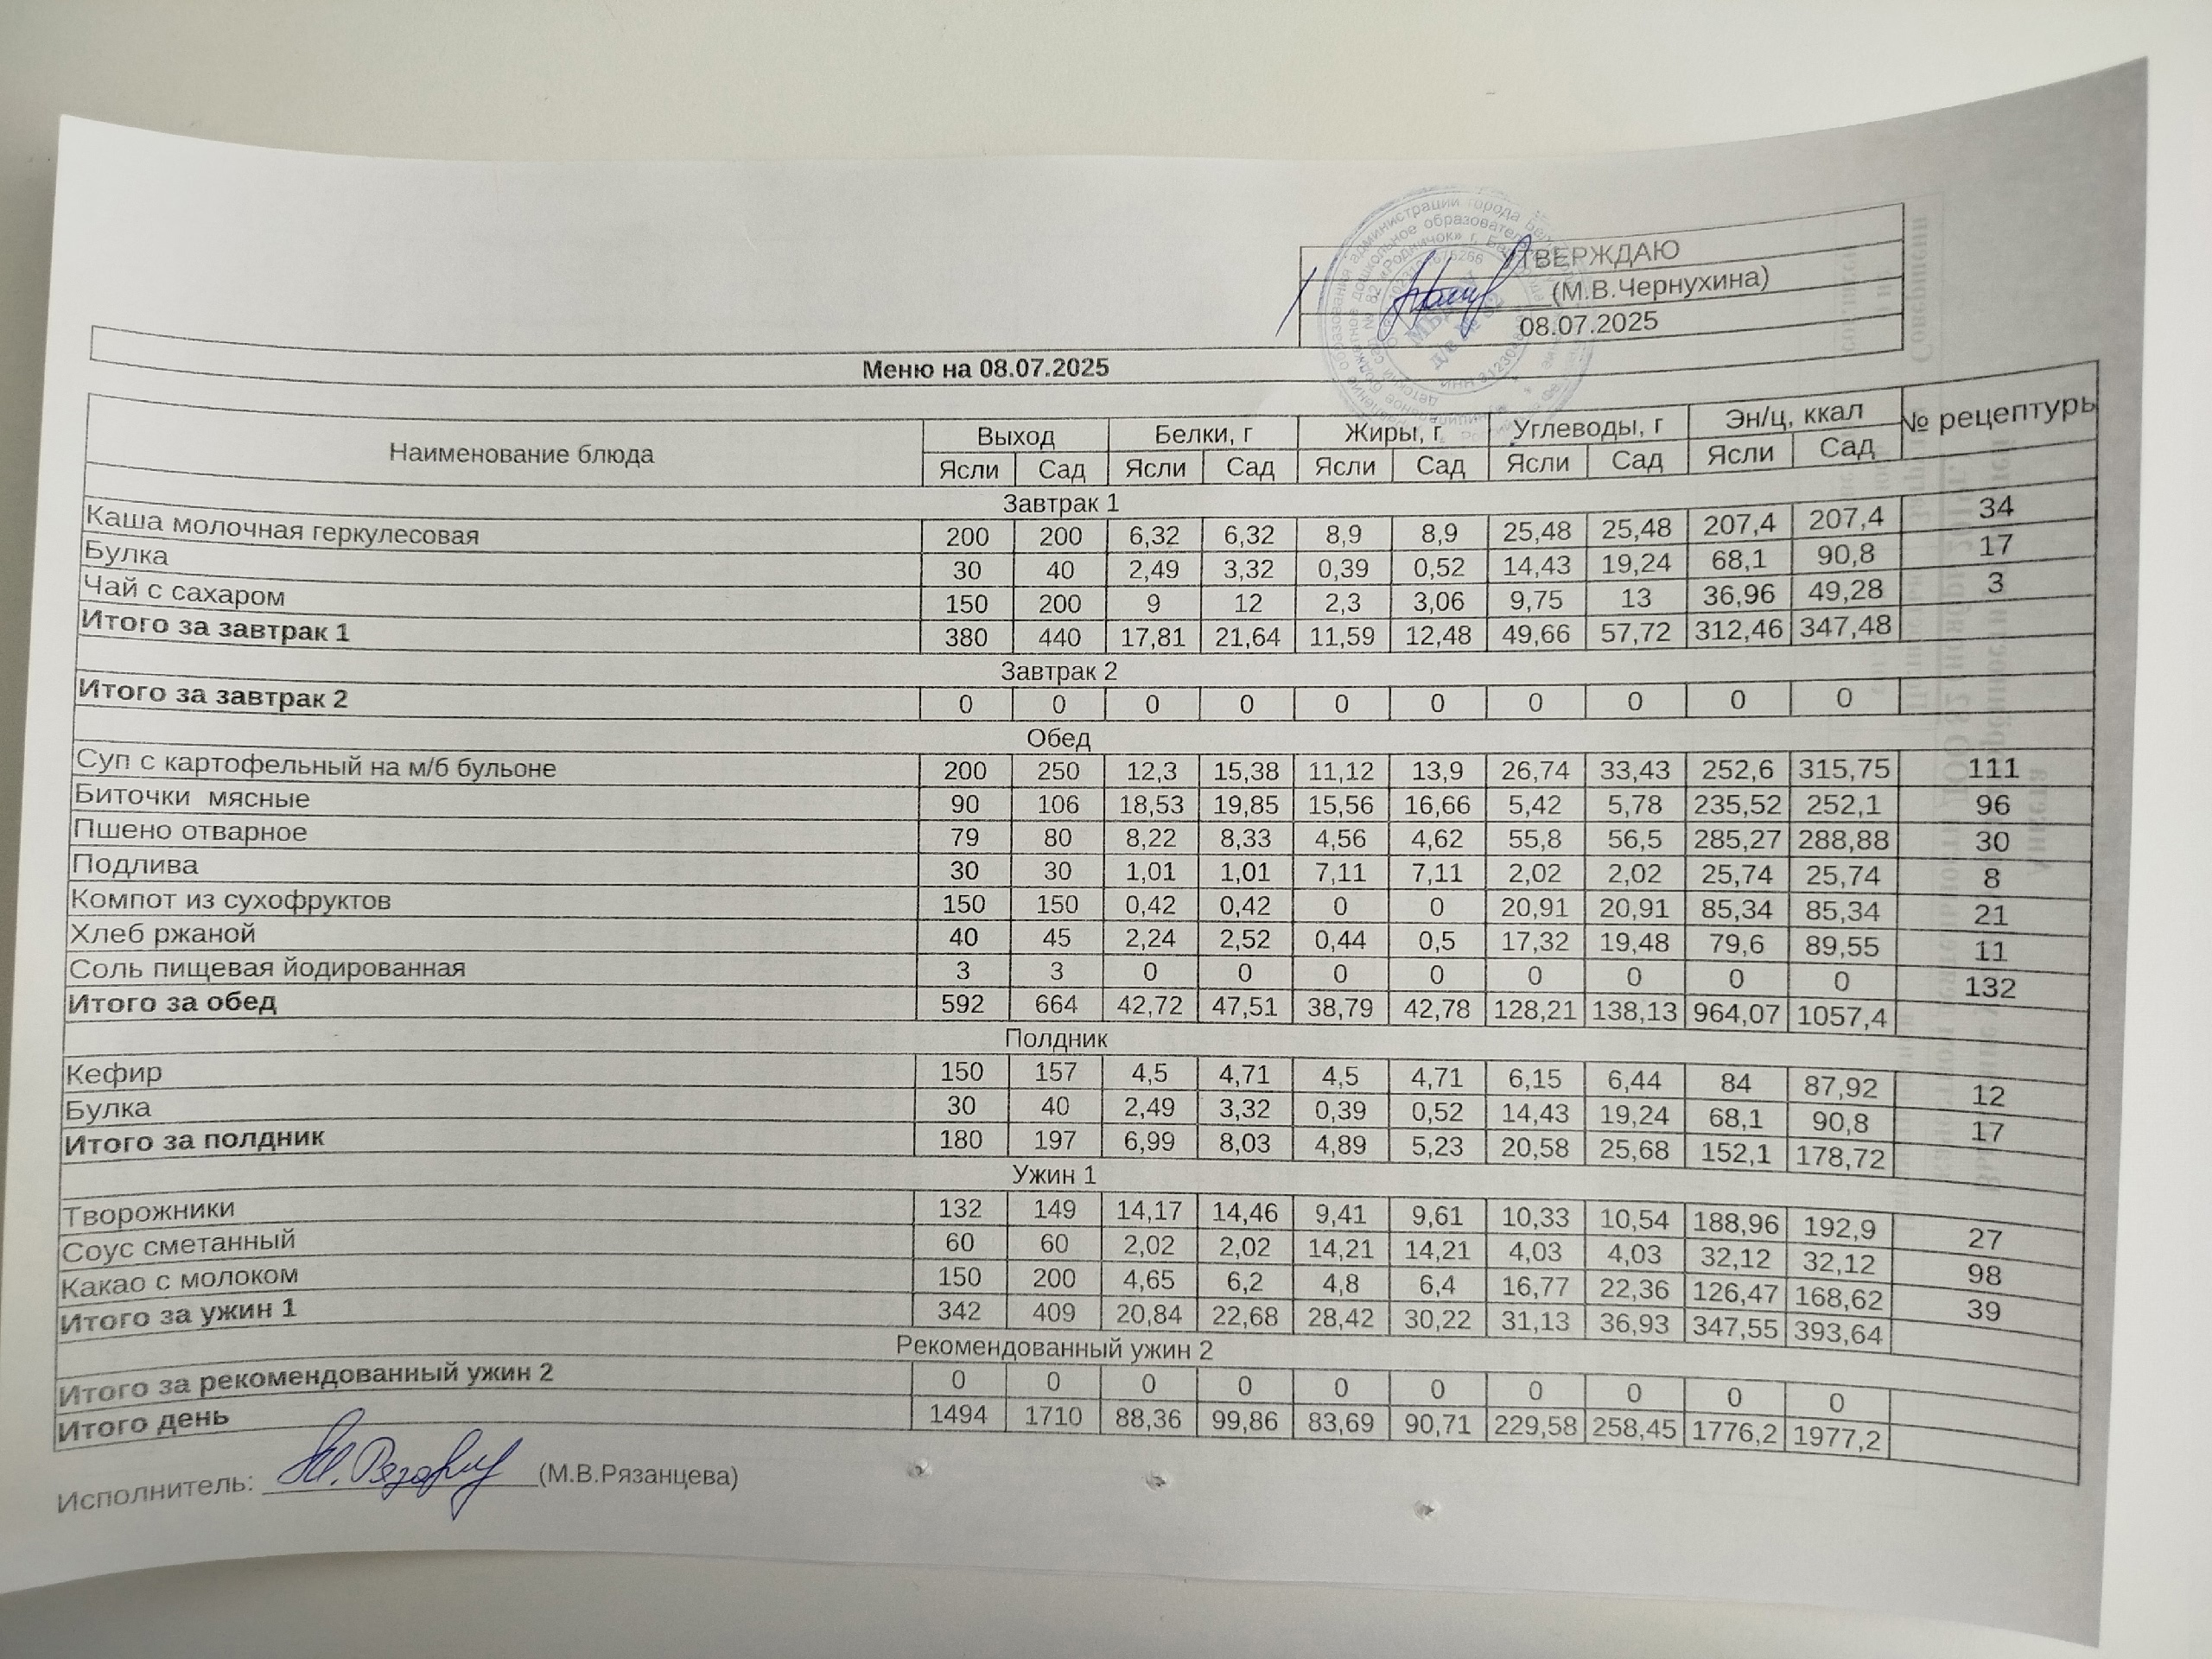 УТВЕРЖДАЮ
(М.В.Чернухина)
08.07.2025
Меню на 08.07.2025
Наименование блюда Выход Белки, г Жиры, г Углеводы, г Эн/ц, ккал № рецептуры
Ясли Сад Ясли Сад Ясли Сад Ясли Сад Ясли Сад
Завтрак 1
Каша молочная геркулесовая 200 200 6,32 6,32 8,9 8,9 25,48 25,48 207,4 207,4 34
Булка 30 40 2,49 3,32 0,39 0,52 14,43 19,24 68,1 90,8 17
Чай с сахаром 150 200 9 12 2,3 3,06 9,75 13 36,96 49,28 3
Итого за завтрак 1 380 440 17,81 21,64 11,59 12,48 49,66 57,72 312,46 347,48
Завтрак 2
Итого за завтрак 2 0 0 0 0 0 0 0 0 0 0
Обед
Суп с картофельный на м/б бульоне 200 250 12,3 15,38 11,12 13,9 26,74 33,43 252,6 315,75 111
Биточки мясные 90 106 18,53 19,85 15,56 16,66 5,42 5,78 235,52 252,1 96
Пшено отварное 79 80 8,22 8,33 4,56 4,62 55,8 56,5 285,27 288,88 30
Подлива 30 30 1,01 1,01 7,11 7,11 2,02 2,02 25,74 25,74 8
Компот из сухофруктов 150 150 0,42 0,42 0 0 20,91 20,91 85,34 85,34 21
Хлеб ржаной 40 45 2,24 2,52 0,44 0,5 17,32 19,48 79,6 89,55 11
Соль пищевая йодированная 3 3 0 0 0 0 0 0 0 0 132
Итого за обед 592 664 42,72 47,51 38,79 42,78 128,21 138,13 964,07 1057,4
Полдник
Кефир 150 157 4,5 4,71 4,5 4,71 6,15 6,44 84 87,92 12
Булка 30 40 2,49 3,32 0,39 0,52 14,43 19,24 68,1 90,8 17
Итого за полдник 180 197 6,99 8,03 4,89 5,23 20,58 25,68 152,1 178,72
Ужин 1
Творожники 132 149 14,17 14,46 9,41 9,61 10,33 10,54 188,96 192,9 27
Соус сметанный 60 60 2,02 2,02 14,21 14,21 4,03 4,03 32,12 32,12 98
Какао с молоком 150 200 4,65 6,2 4,8 6,4 16,77 22,36 126,47 168,62 39
Итого за ужин 1 342 409 20,84 22,68 28,42 30,22 31,13 36,93 347,55 393,64
Рекомендованный ужин 2
Итого за рекомендованный ужин 2 0 0 0 0 0 0 0 0 0 0
Итого день 1494 1710 88,36 99,86 83,69 90,71 229,58 258,45 1776,2 1977,2
Исполнитель: (М.В.Рязанцева)